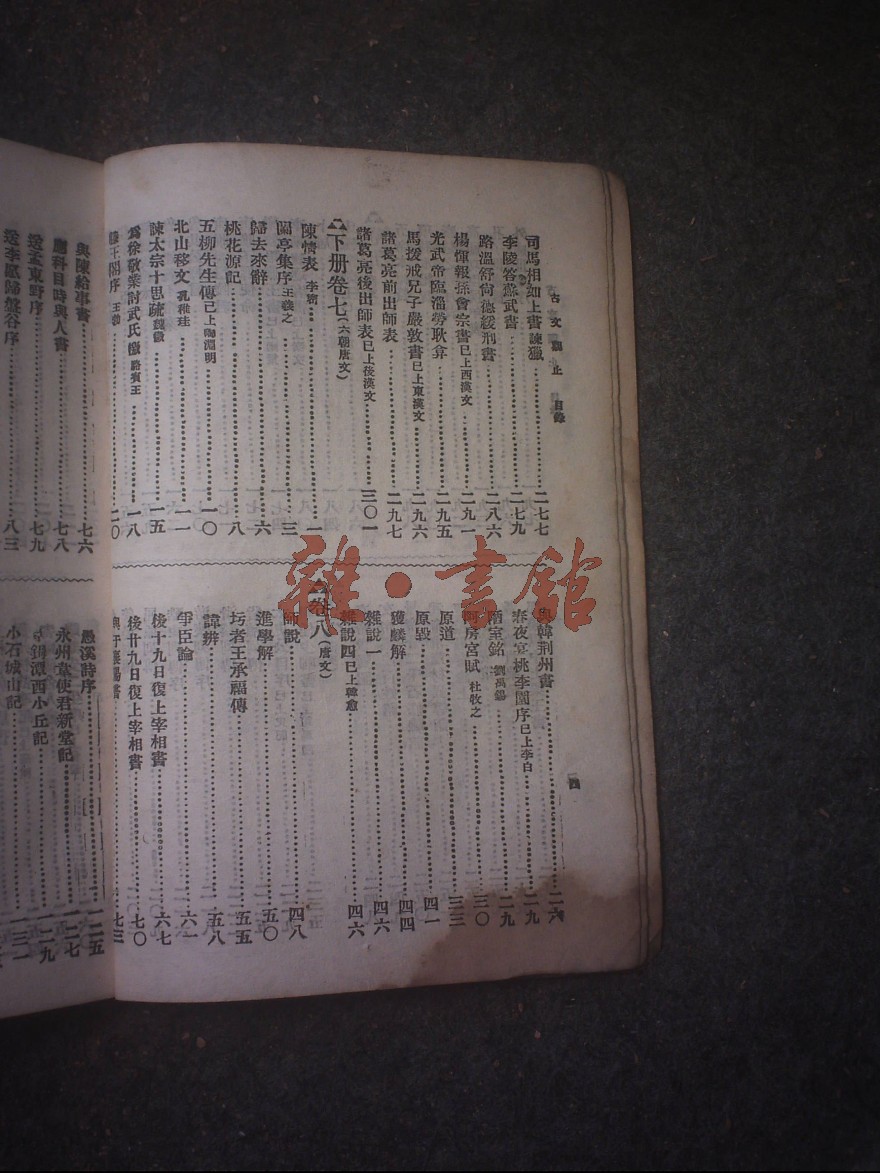 古文觀止　目錄
司馬相如上書諫獵……二七七
李陵答蘇武書……二七九
路溫舒尚德緩刑書……二八六
楊惲報孫會宗書已上西漢文……二九一
光武帝臨淄勞耿弇……二九五
馬援戒兄子嚴敦書已上東漢文……二九六
諸葛亮前出師表……二九七
諸葛亮後出師表已上後漢文……三〇一
下册卷七(六朝唐文)
陳情表　李密……一
蘭亭集序王羲之……三
歸去來辭……六
桃花源記……八
五柳先生傳已上陶淵明……一〇
北山移文　孔稚珪……一一
諫太宗十思疏魏徵……一五
爲徐敬業討武氏檄　駱賓王……一八
滕王閣序　王勃……二〇
與韓荆州書……二六
春夜宴桃李園序已上李白……二九
陋室銘　劉禹錫……二九
阿房宮賦　杜牧之……三〇
原道……三三
原毀……四一
獲麟解……四四
雜說一……四六
雜說四已上韓愈……四六
卷八(唐文)
師說……四八
進學解……五〇
圬者王承福傳……五五
諱辨……五八
爭臣論……六一
後十九日復上宰相書……六七
後廿九日復上宰相書……七〇
與于襄陽書……七三
四
與陳給事書……七六
應科目時與人書……七八
送孟東野序……七九
送李愿歸盤谷序……八三
愚溪詩序……一二五
永州韋使君新堂記……一二七
鈷鉧潭西小丘記……一二九
小石城山記……一三一
雜·書館